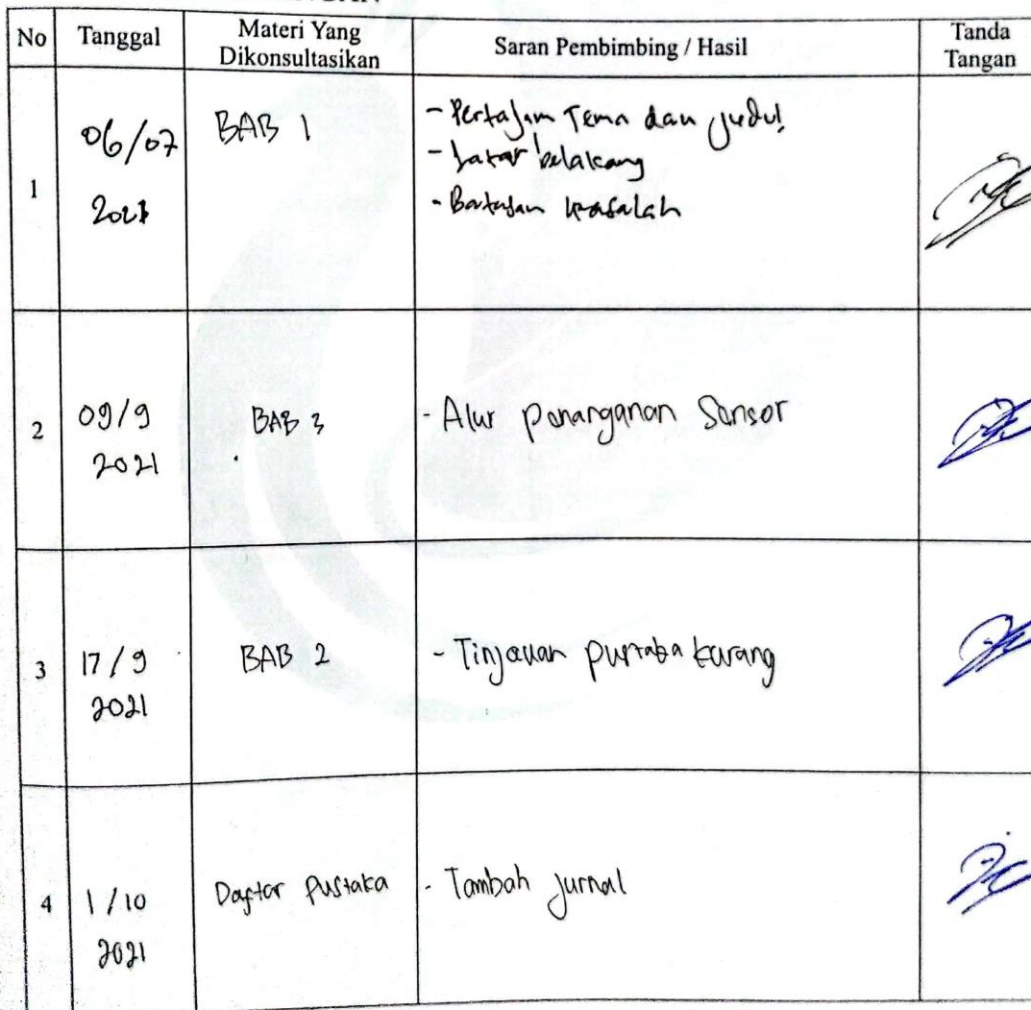 No Tanggal Materi Yang Dikonsultasikan Saran Pembimbing / Hasil Tanda Tangan
1 06/07 2021 BAB 1 - Pertajam Tema dan judul
- Latar belakang
- Batasan masalah
2 09/9 2021 BAB 3 - Alur penanganan Sensor
3 17/9 2021 BAB 2 - Tinjauan pustaka kurang
4 1/10 2021 Daftar Pustaka - Tambah jurnal